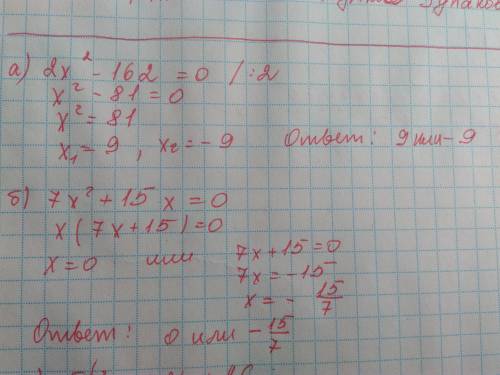 а) 2x² - 162 = 0 /:2
x² - 81 = 0
x² = 81
x₁ = 9, x₂ = -9 Ответ: 9 или -9
б) 7x² + 15x = 0
x(7x+15)=0
x = 0 или 7x+15=0
7x = -15
x = - 15/7
Ответ: 0 или - 15/7